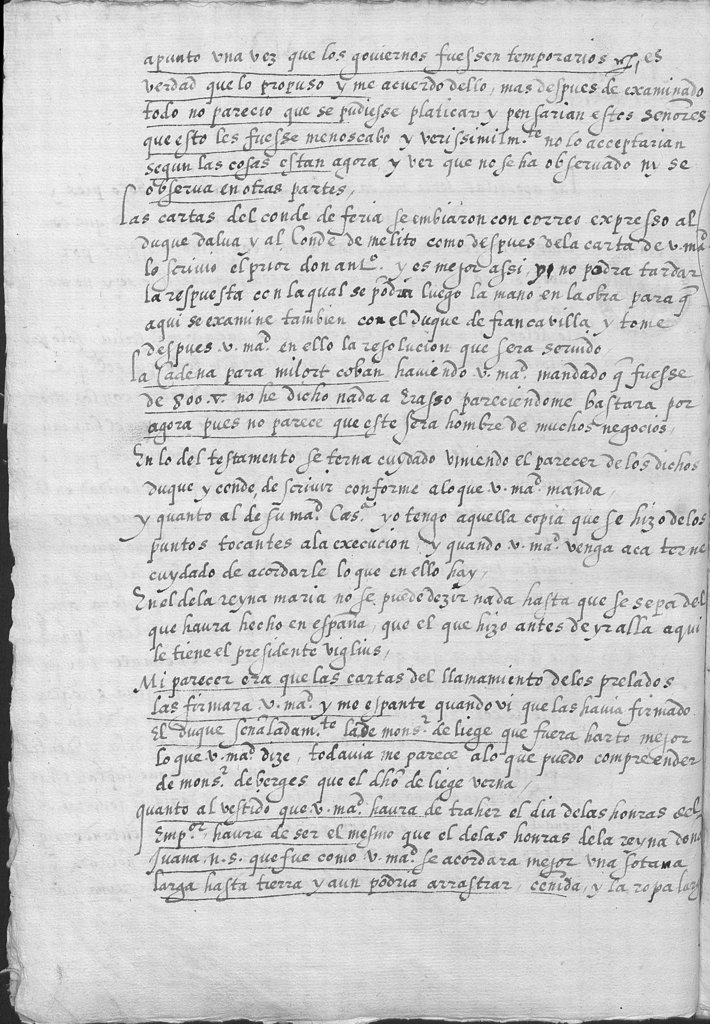 apunto una vez que los goviernos fuessen temporarios es
verdad que lo propuso y me acuerdo dello, mas despues de examinado
todo no parecio que se pudiesse platicar y pensarian estos señores
que esto les fuesse menoscabo y verissimilm.te no lo acceptarian
segun las cosas estan agora y ver que no se ha observado ny se
observa en otras partes,
Las cartas del conde de feria se embiaron con correo expresso al
duque dalva y al Conde de melito como despues dela carta de v. mad.
lo scrivio el prior don ant.o y es mejor assi, no podra tardar
la respuesta con la qual se podra luego la mano en la obra para q̃
aqui se examine tambien con el duque de francavilla y tome
despues v. mad. en ello la resolucion que sera servido
La Cadena para milort coban haviendo v. mad. mandado q̃ fuesse
de 800. v. no he dicho nada a Erasso pareciendome bastara por
agora pues no parece que este sera hombre de muchos negocios,
En lo del testamento se terna cuydado viniendo el parecer de los dichos
duque y conde, de scrivir conforme alo que v. mad. manda,
y quanto al de su mad. Ces.a yo tengo aquella copia que se hizo delos
puntos tocantes ala execucion, y quando v. mad. venga aca terne
cuydado de acordarle lo que en ello hay,
En el dela reyna maria no se puede dezir nada hasta que se sepa del
que havra hecho en españa, que el que hizo antes de yr alla aqui
le tiene el presidente viglius,
Mi parecer era que las cartas del llamamiento delos prelados
las firmara v. mad. y me espante quando vi que las havia firmado
El duque señaladam.te la de mons.r de liege que fuera harto mejor
lo que v. mad. dize, todavia me parece alo que puedo comprender
de mons.r de berges que el dho de liege verna,
quanto al vestido que v. mad. havra de traher el dia delas honras del
Emp.or, havra de ser el mesmo que el delas honras dela reyna doña
Juana n. s. que fue como v. mad. se acordara mejor una sotana
larga hasta tierra y aun podria arrastrar, ceñida, y la ropa